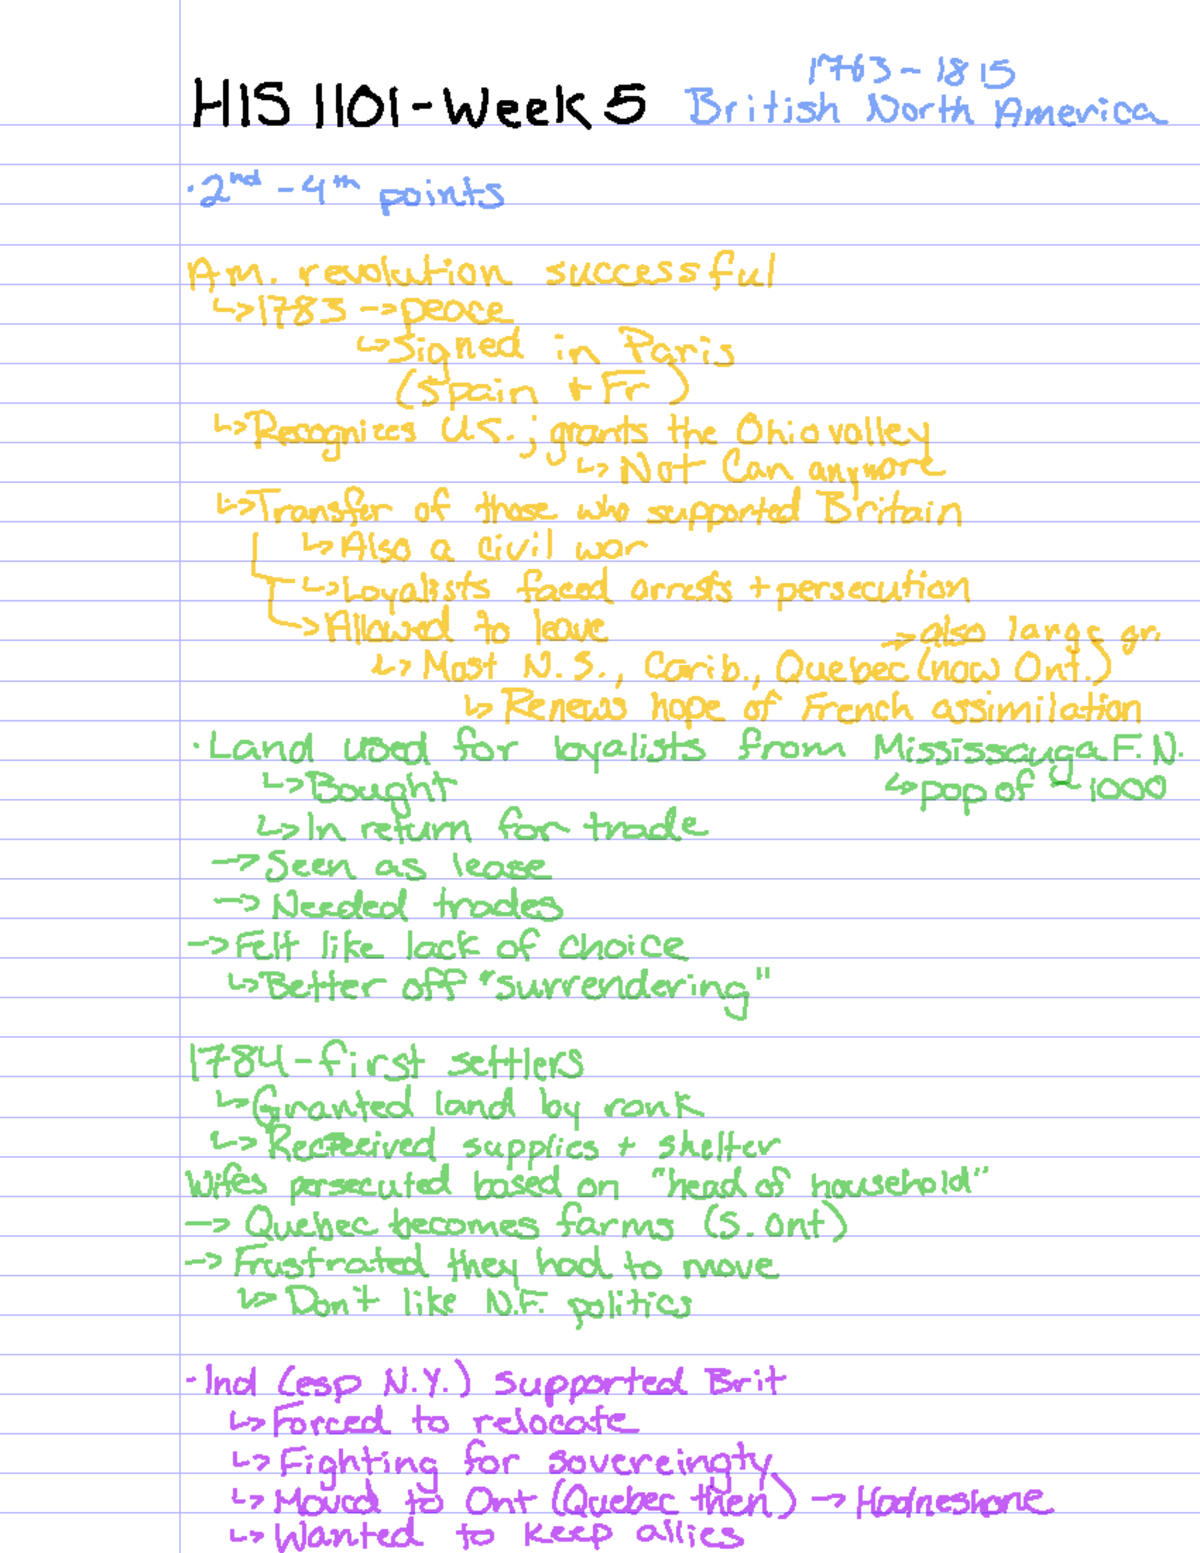 1763-1815
HIS 1101-Week 5 British North America
·2nd-4th points
Am. revolution successful
↳1783 → peace
↳Signed in Paris
(Spain + Fr)
↳Recognizes U.S.; grants the Ohio valley
↳ Not Can anymore
↳Transfer of those who supported Britain
↳Also a civil war
↳Loyalists faced arrests + persecution
↳Allowed to leave → also large gr.
↳ Most N.S., Carib., Quebec (now Ont.)
↳ Renews hope of French assimilation
·Land used for loyalists from Mississauga F.N.
↳Bought ↳pop of ~1000
↳In return for trade
→Seen as lease
→ Needed trades
→Felt like lack of choice
↳Better off "surrendering"
1784-first settlers
↳Granted land by rank
↳Receeived supplies + shelter
Wifes persecuted based on "head of household"
→ Quebec becomes farms (S. Ont)
→ Frustrated they had to move
↳ Don't like N.F. politics
·Ind (esp N.Y.) supported Brit
↳Forced to relocate
↳Fighting for sovereingty
↳ Moved to Ont (Quebec then) →
↳Wanted to keep allies